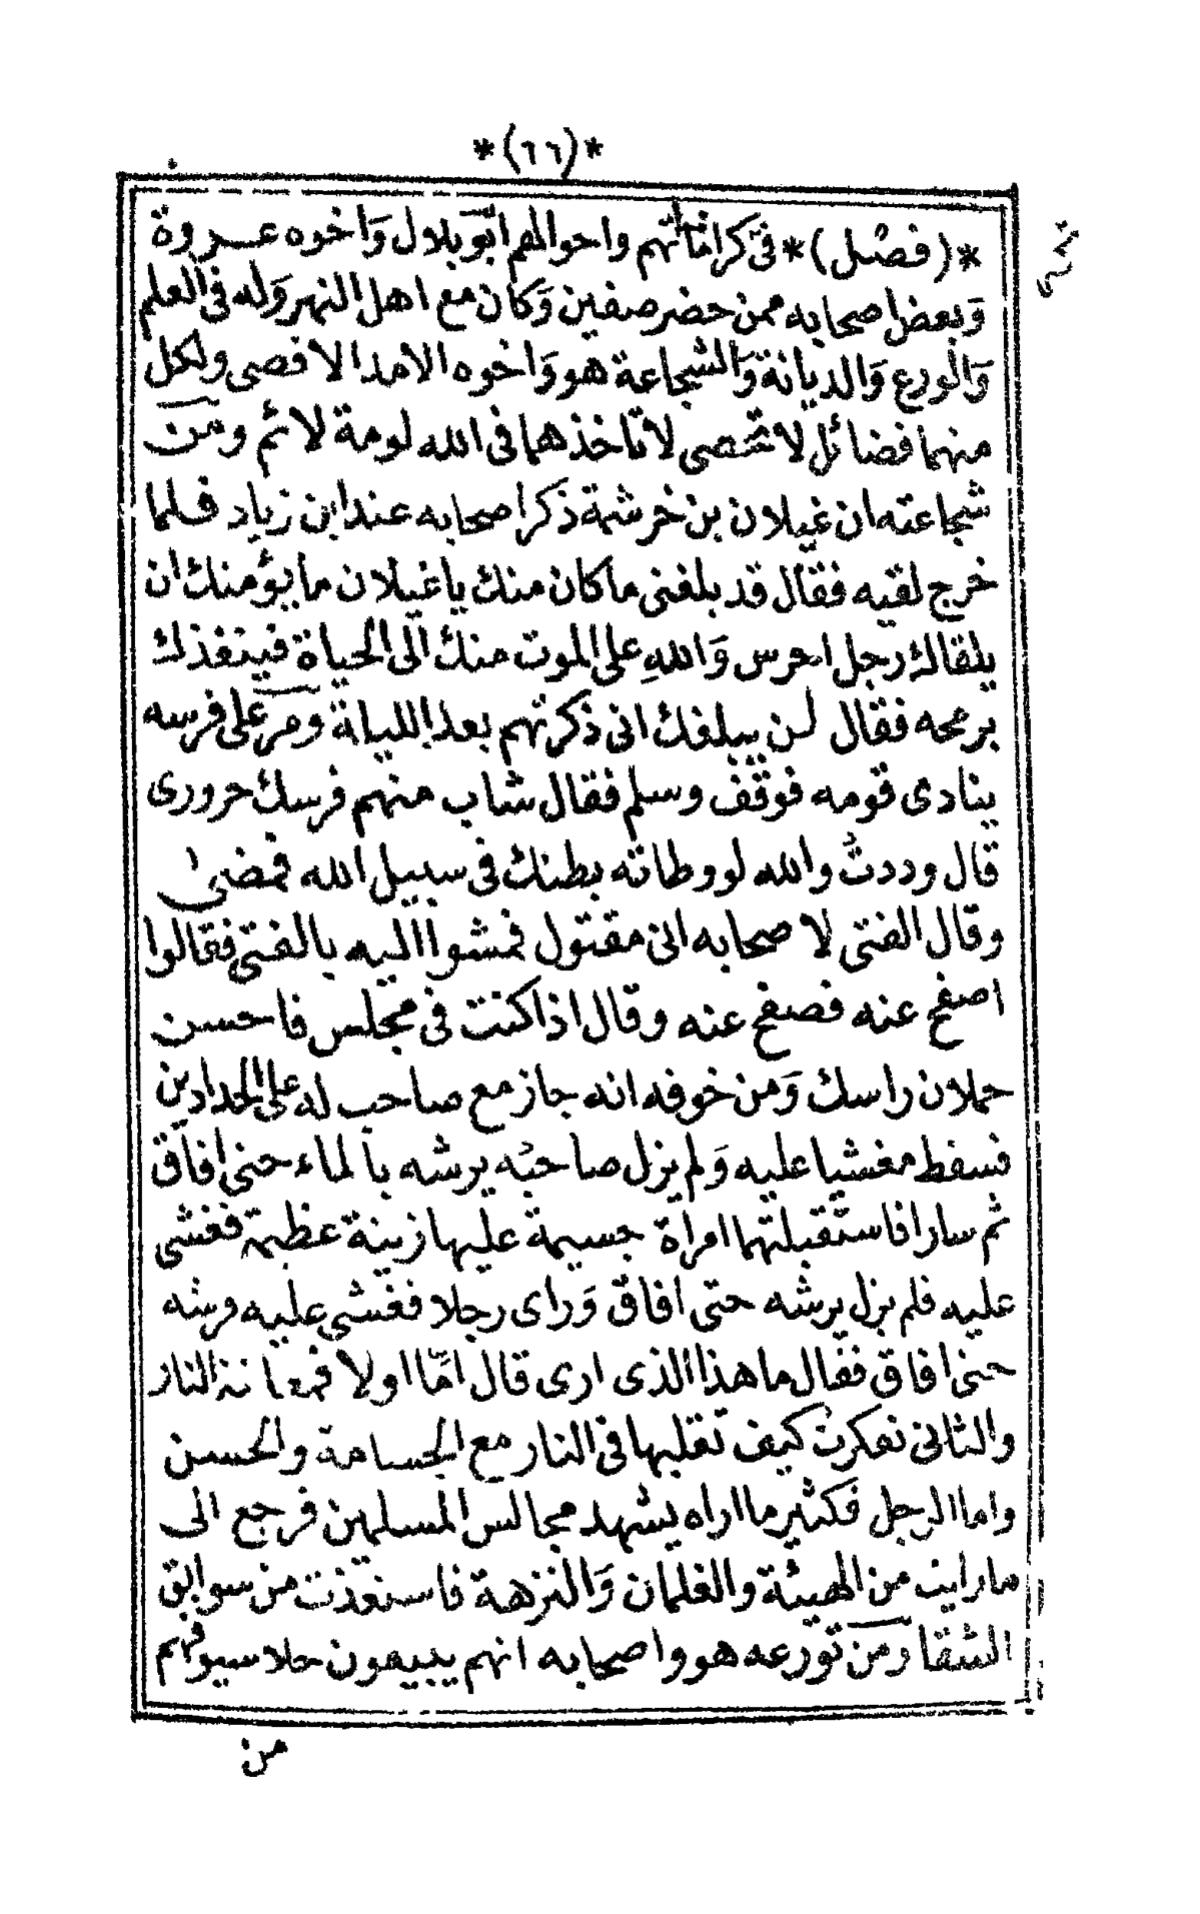 *(٦٦)*
*(فصل)* في كراماتهم واحوالهم ابو بلال وَاخوه عـروة
وَبعض اصحابه ممن حضر صفين وَكان مع اهل النهر وَله في العلم
وَالورع وَالديانة وَالشجاعة هو وَاخوه الامد الاقصى ولكل
منهما فضائل لا تحصى لا تاخذهما في الله لومة لائم ومن
شجاعته ان غيلان بن خرشة ذكر اصحابه عند ابن زياد فلما
خرج لقيه فقال قد بلغني ما كان منك يا غيلان ما يؤمنك ان
يلقاك رجل احرس وَاللهِ على الموت منك الى الحياة فينفذك
برمحه فقال لن يبلغك اني ذكرتهم بعد الليلة ومر على فرسه
ينادى قومه فوقف وسلم فقال شاب منهم فرسك حرورى
قال وددتُ والله لو وطاته بطنك في سبيل الله فمضى
وقال الفتى لاصحابه اني مقتول فمشوا اليه بالفتى فقالوا
اصفح عنه فصفح عنه وقال اذا كنت في مجلس فاحسن
حملان راسك وَمن خوفه انه جاز مع صاحب له على الحدادين
فسقط مغشيا عليه وَلم يزل صاحبه يرشه بالماء حتى افاق
ثم سارا فاستقبلتهما امراة جسيمة عليها زينة عظيمة فغشى
عليه فلم يزل يرشه حتى افاق وَراى رجلا فغشى عليه ورشه
حتى افاق فقال ما هذا الذى ارى قال امّا اولا فمعاينة النار
والثانى تفكرت كيف تقلبها في النار مع الجسامة والحسن
واما الرجل فكثير ما اراه يشهد مجالس المسلمين فرجع الى
ما رايت من الهيئة والغلمان وَالنزهة فاستعذت من سوابق
الشقا وَمن تورعه هو واصحابه انهم يبيعون حلا سيوفهم
من